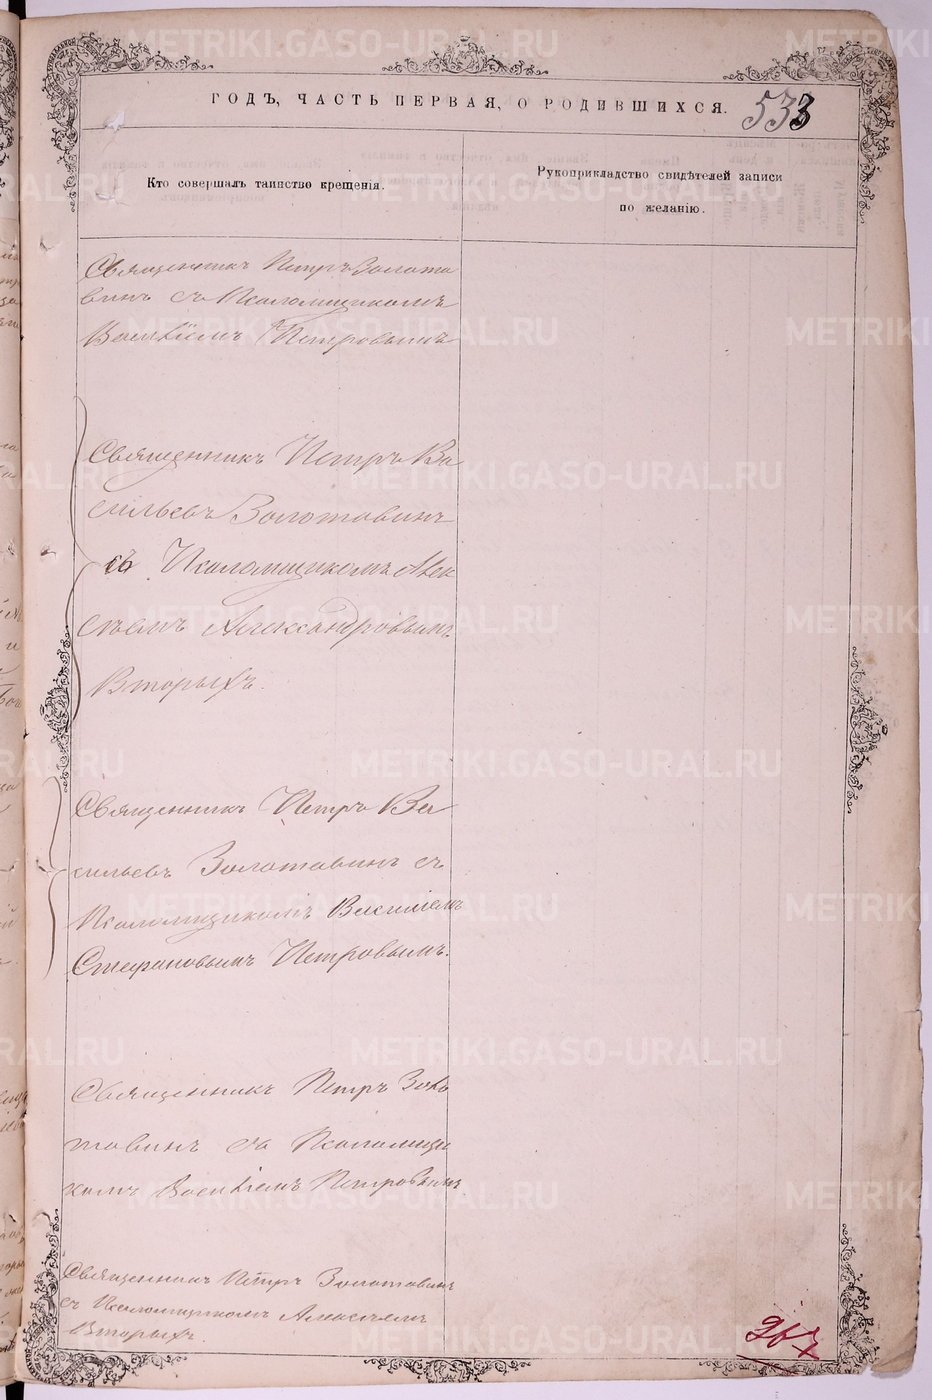 ГОДЪ, ЧАСТЬ ПЕРВАЯ, О РОДИВШИХСЯ.
533
Кто совершалъ таинство крещенія.
Рукоприкладство свидѣтелей записи
по желанію.
Священникъ Петръ Золото
винъ съ Псаломщикомъ
Василіемъ Петровымъ
Священникъ Петръ Ва
сильевъ Золотавинъ
съ Псаломщикомъ Алек
сѣемъ Александровымъ
Вторыхъ.
Священникъ Петръ Ва
сильевъ Золотавинъ съ
Псаломщикомъ Василіемъ
Стефановымъ Петровымъ.
Священникъ Петръ Золо
тавинъ съ Псаломщи
комъ Василіемъ Петровымъ
Священникъ Петръ Золотовинъ
съ Псаломщикомъ Алексѣемъ
Вторыхъ.
267
METRIKI.GASO-URAL.RU